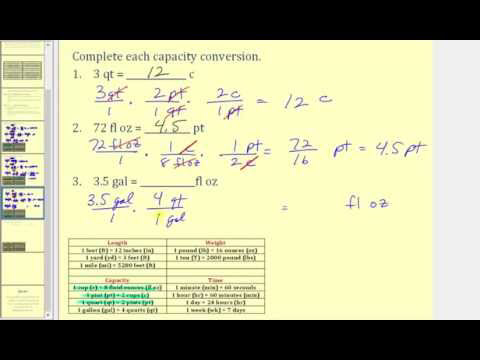 Complete each capacity conversion.
1. 3 qt = 12 c
3 qt / 1 · 2 pt / 1 qt · 2 c / 1 pt = 12 c
2. 72 fl oz = 4.5 pt
72 fl oz / 1 · 1 c / 8 fl oz · 1 pt / 2 c = 72 / 16 pt = 4.5 pt
3. 3.5 gal = ________ fl oz
3.5 gal / 1 · 4 qt / 1 gal = fl oz
Length Weight
1 foot (ft) = 12 inches (in) 1 pound (lb) = 16 ounces (oz)
1 yard (yd) = 3 feet (ft) 1 ton (T) = 2000 pound (lbs)
1 mile (mi) = 5280 feet (ft)
Capacity Time
1 cup (c) = 8 fluid ounces (fl oz) 1 minute (min) = 60 seconds
1 pint (pt) = 2 cups (c) 1 hour (hr) = 60 minutes (min)
1 quart (qt) = 2 pints (pt) 1 day = 24 hours (hr)
1 gallon (gal) = 4 quarts (qt) 1 week (wk) = 7 days